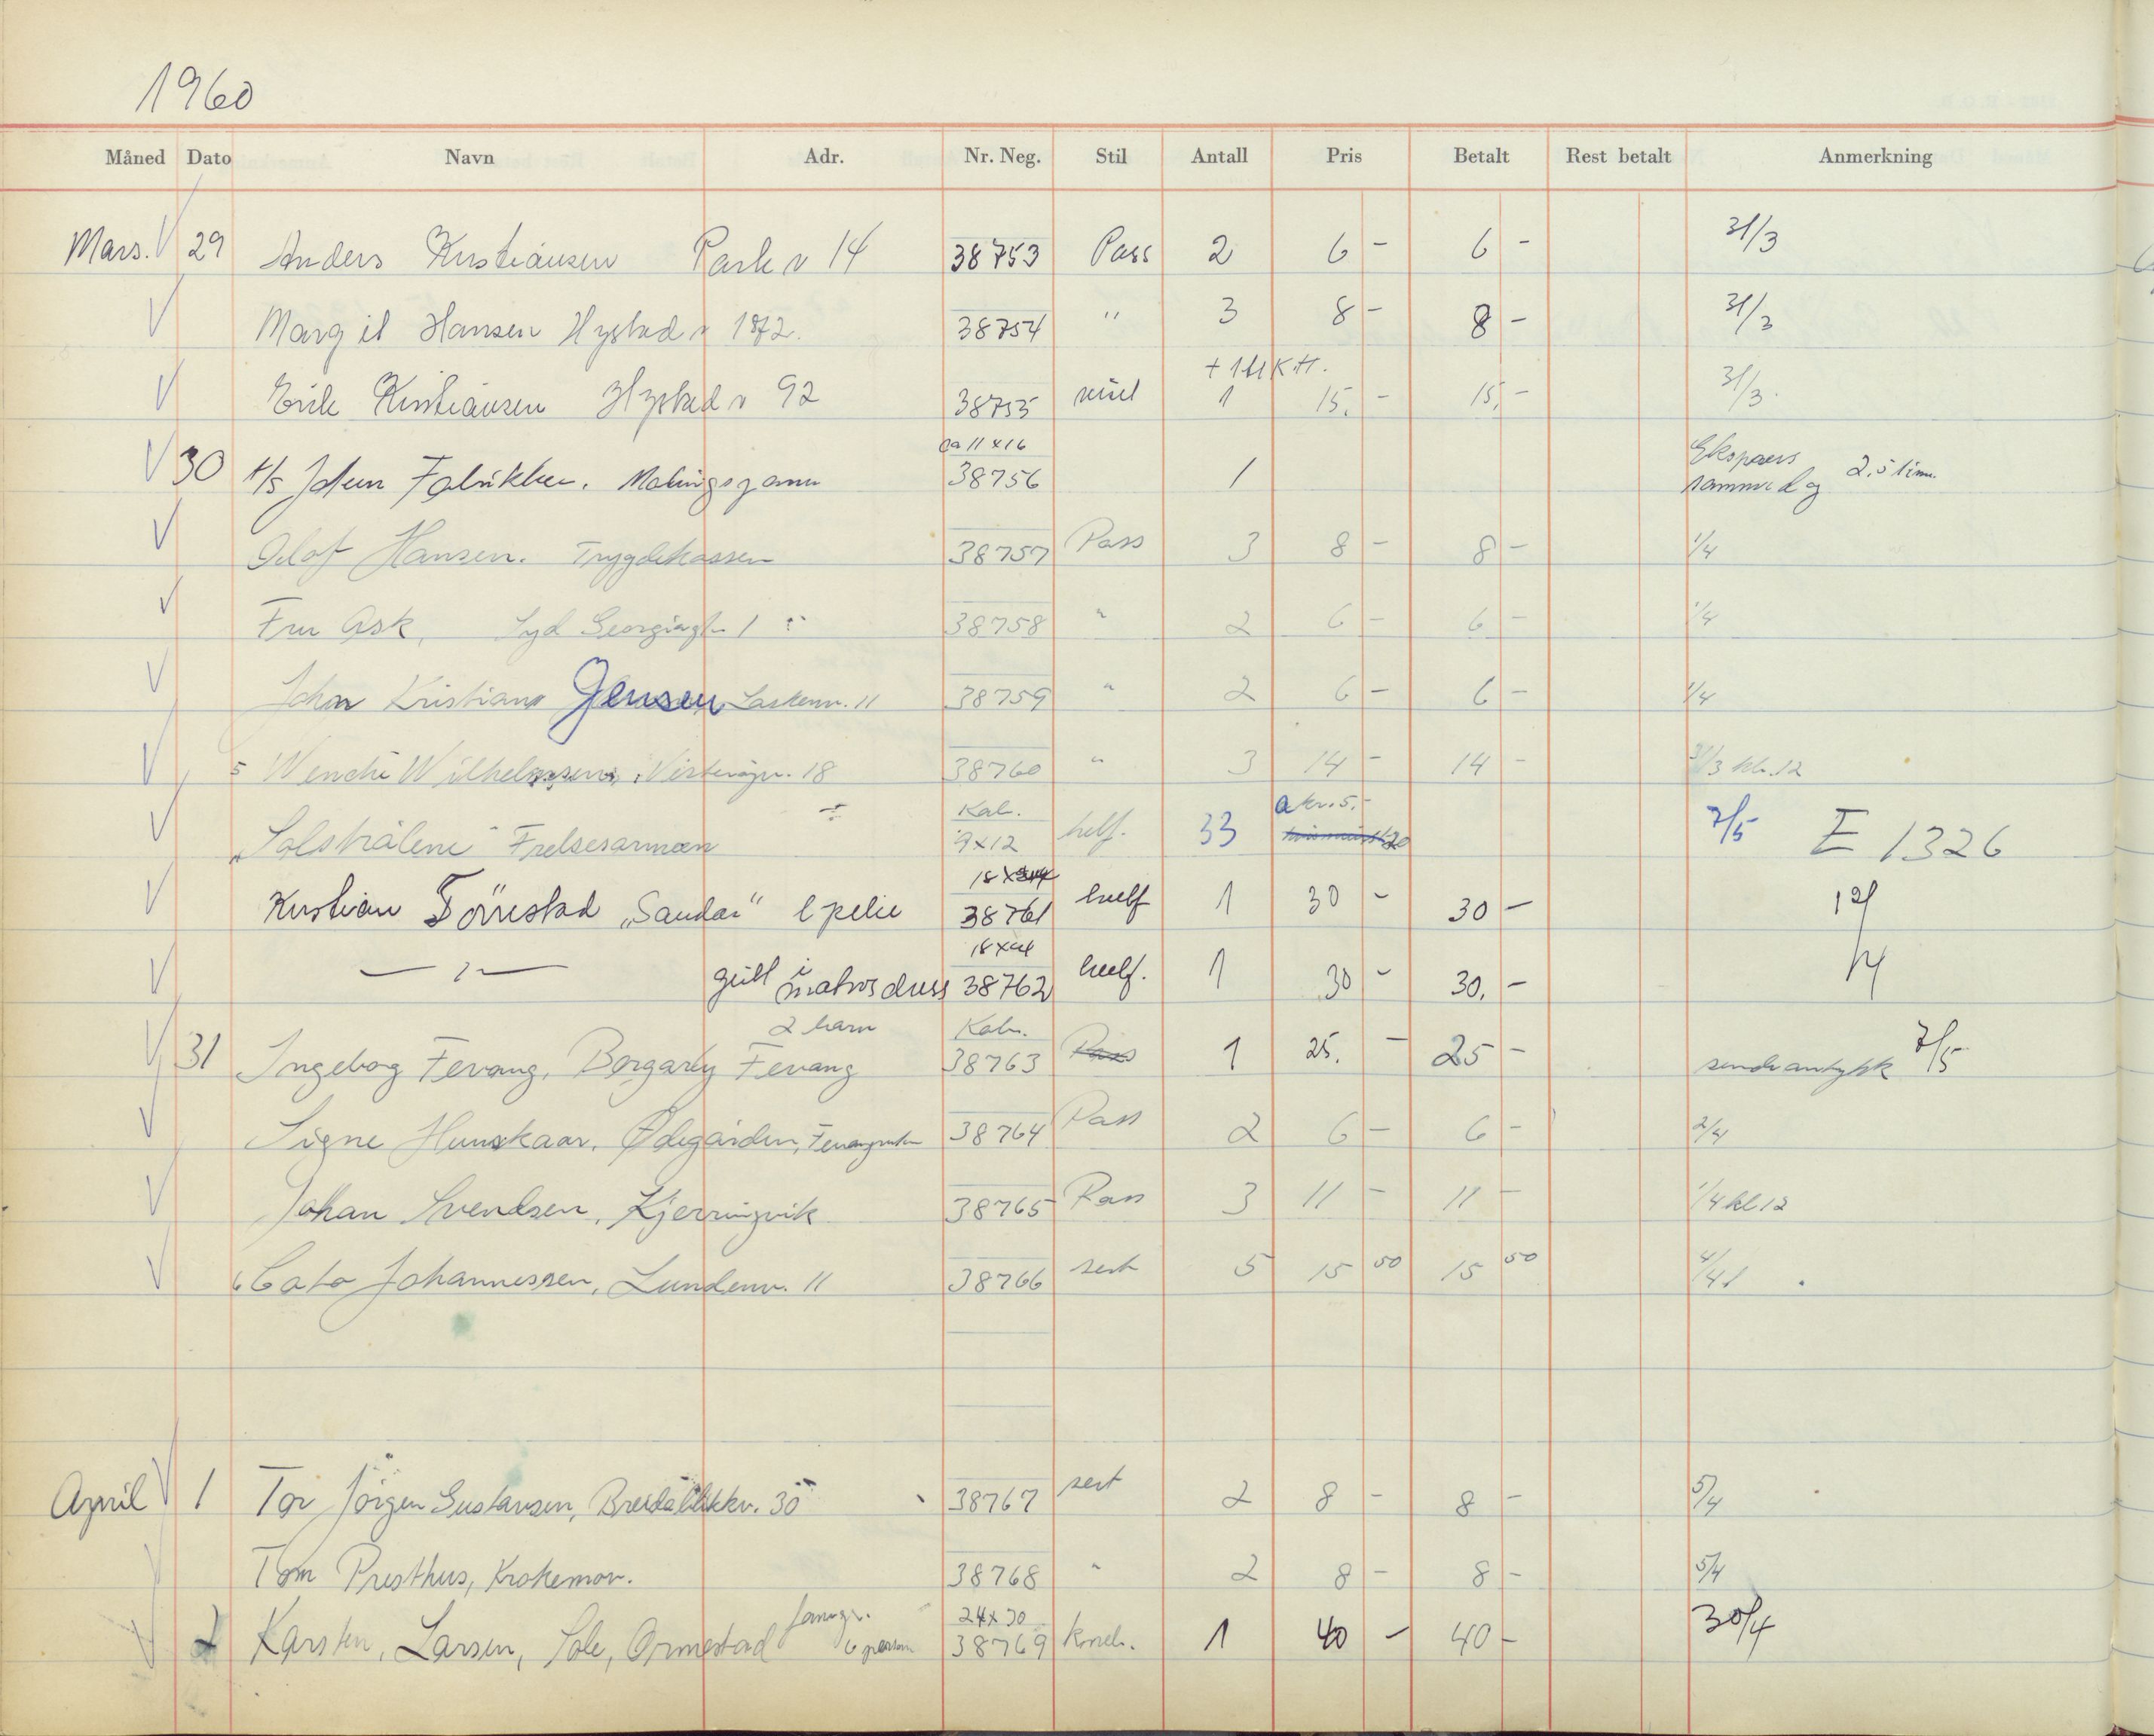 1960
Måned Dato Navn Adr. Nr. Neg. Stil Antall Pris Betalt Rest betalt Anmerkning
Mars. 29 Anders Kristiansen Park v 14 38753 Pass 2 6 - 6 - 31/3
Margit Hansen Hystad v 38754 " 3 8 - 8 - 31/3
Erik Kristiansen Hystad v 92 38755 1 15. - 15, - 31/3
ca 11 x 16
30 A/S Jotun Fabrikker. 38756 1 Ekspress samme dag 2,5 time
Olof Hansen. Trygdekassen 38757 Pass 3 8 - 8 - 1/4
Fru Ask, Syd Georgiagt. 1 38758 " 2 6 - 6 - 1/4
Johan Kristian Jensen 11 38759 " 2 6 - 6 - 1/4
5 Wenche Wilhelmsen, 18 38760 " 3 14 - 14 - 31/3 kl. 12
Kab. a kr. 5.-
"Solstrålene" Frelsesarmeen 9x12 helf. 33 7/5 E 1326
18 x
Kristian "Sandar" 38761 helf 1 30 - 30 -
18 x 24
gutt i matros dress 38762 helf. 1 30 - 30. -
2 barn Kab.
31 Ingeborg Fevang, Fevang 38763 Pass 1 25. - 25 - 7/5
Signe Hunskaar, Ødegården, 38764 Pass 2 6 - 6 - 2/4
Johan Svendsen, Kjerringvik 38765 Pass 3 11 - 11 - 1/4 kl 12
6 Cato Johannessen, Lundenv. 11 38766 sert 5 15 50 15 50
April 1 Tor Jörgen Gustavsen, Breidablikkv. 30 38767 sert 2 8 - 8 - 5/4
Tom Presthus, Krokemov. 38768 " 2 8 - 8 - 5/4
famgr. 24x30
2 Karsten, Larsen, Sole, Ormestad 6 person 38769 1 40 - 40 - 30/4